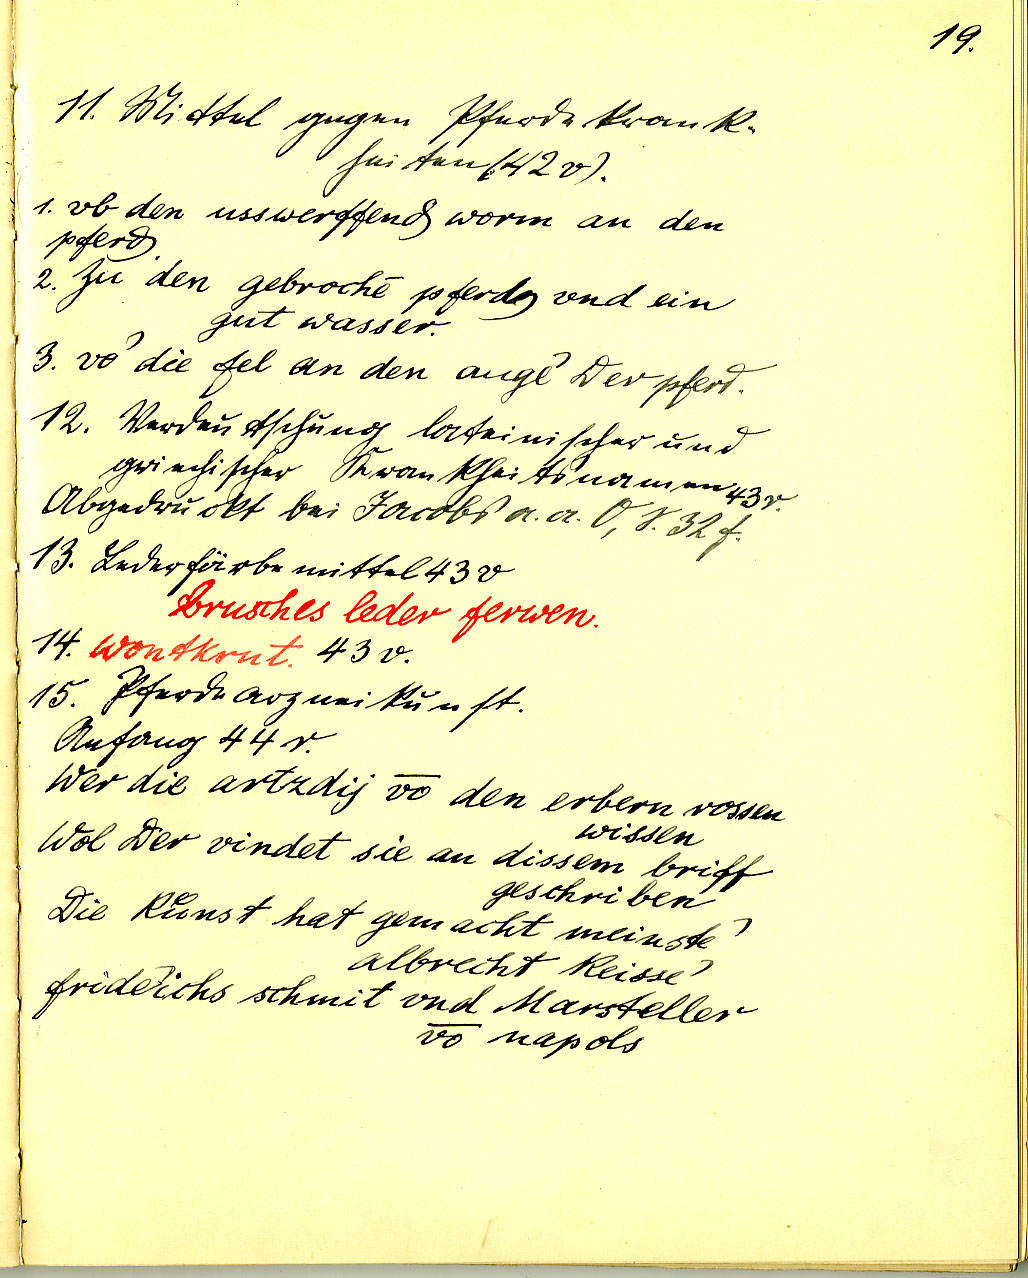 19.
11. Mittel gegen Pferdekrank-
heiten (42v).
1. vb den usswerffend worm an den
pferd.
2. Zu den gebrochē pferd vnd ein
gut wasser.
3. vo' die fel an den auge' Der pferd.
12. Verdeutschung lateinischer und
griechischer Krankheitsnamen 43r.
Abgedruckt bei Jacobs a. a. O, S. 32 f.
13. Lederfärbemittel 43v
brusches leder ferwen.
14. wontkrut. 43v.
15. Pferdearzneikunst.
Anfang 44r.
Wer die artzdij vō den erbern rossen
wissen
Wol Der vindet sie an dissem briff
geschriben
Die kůnst hat gemacht meinste'
albrecht keisse'
friderichs schmit vnd Marsteller
vō napols